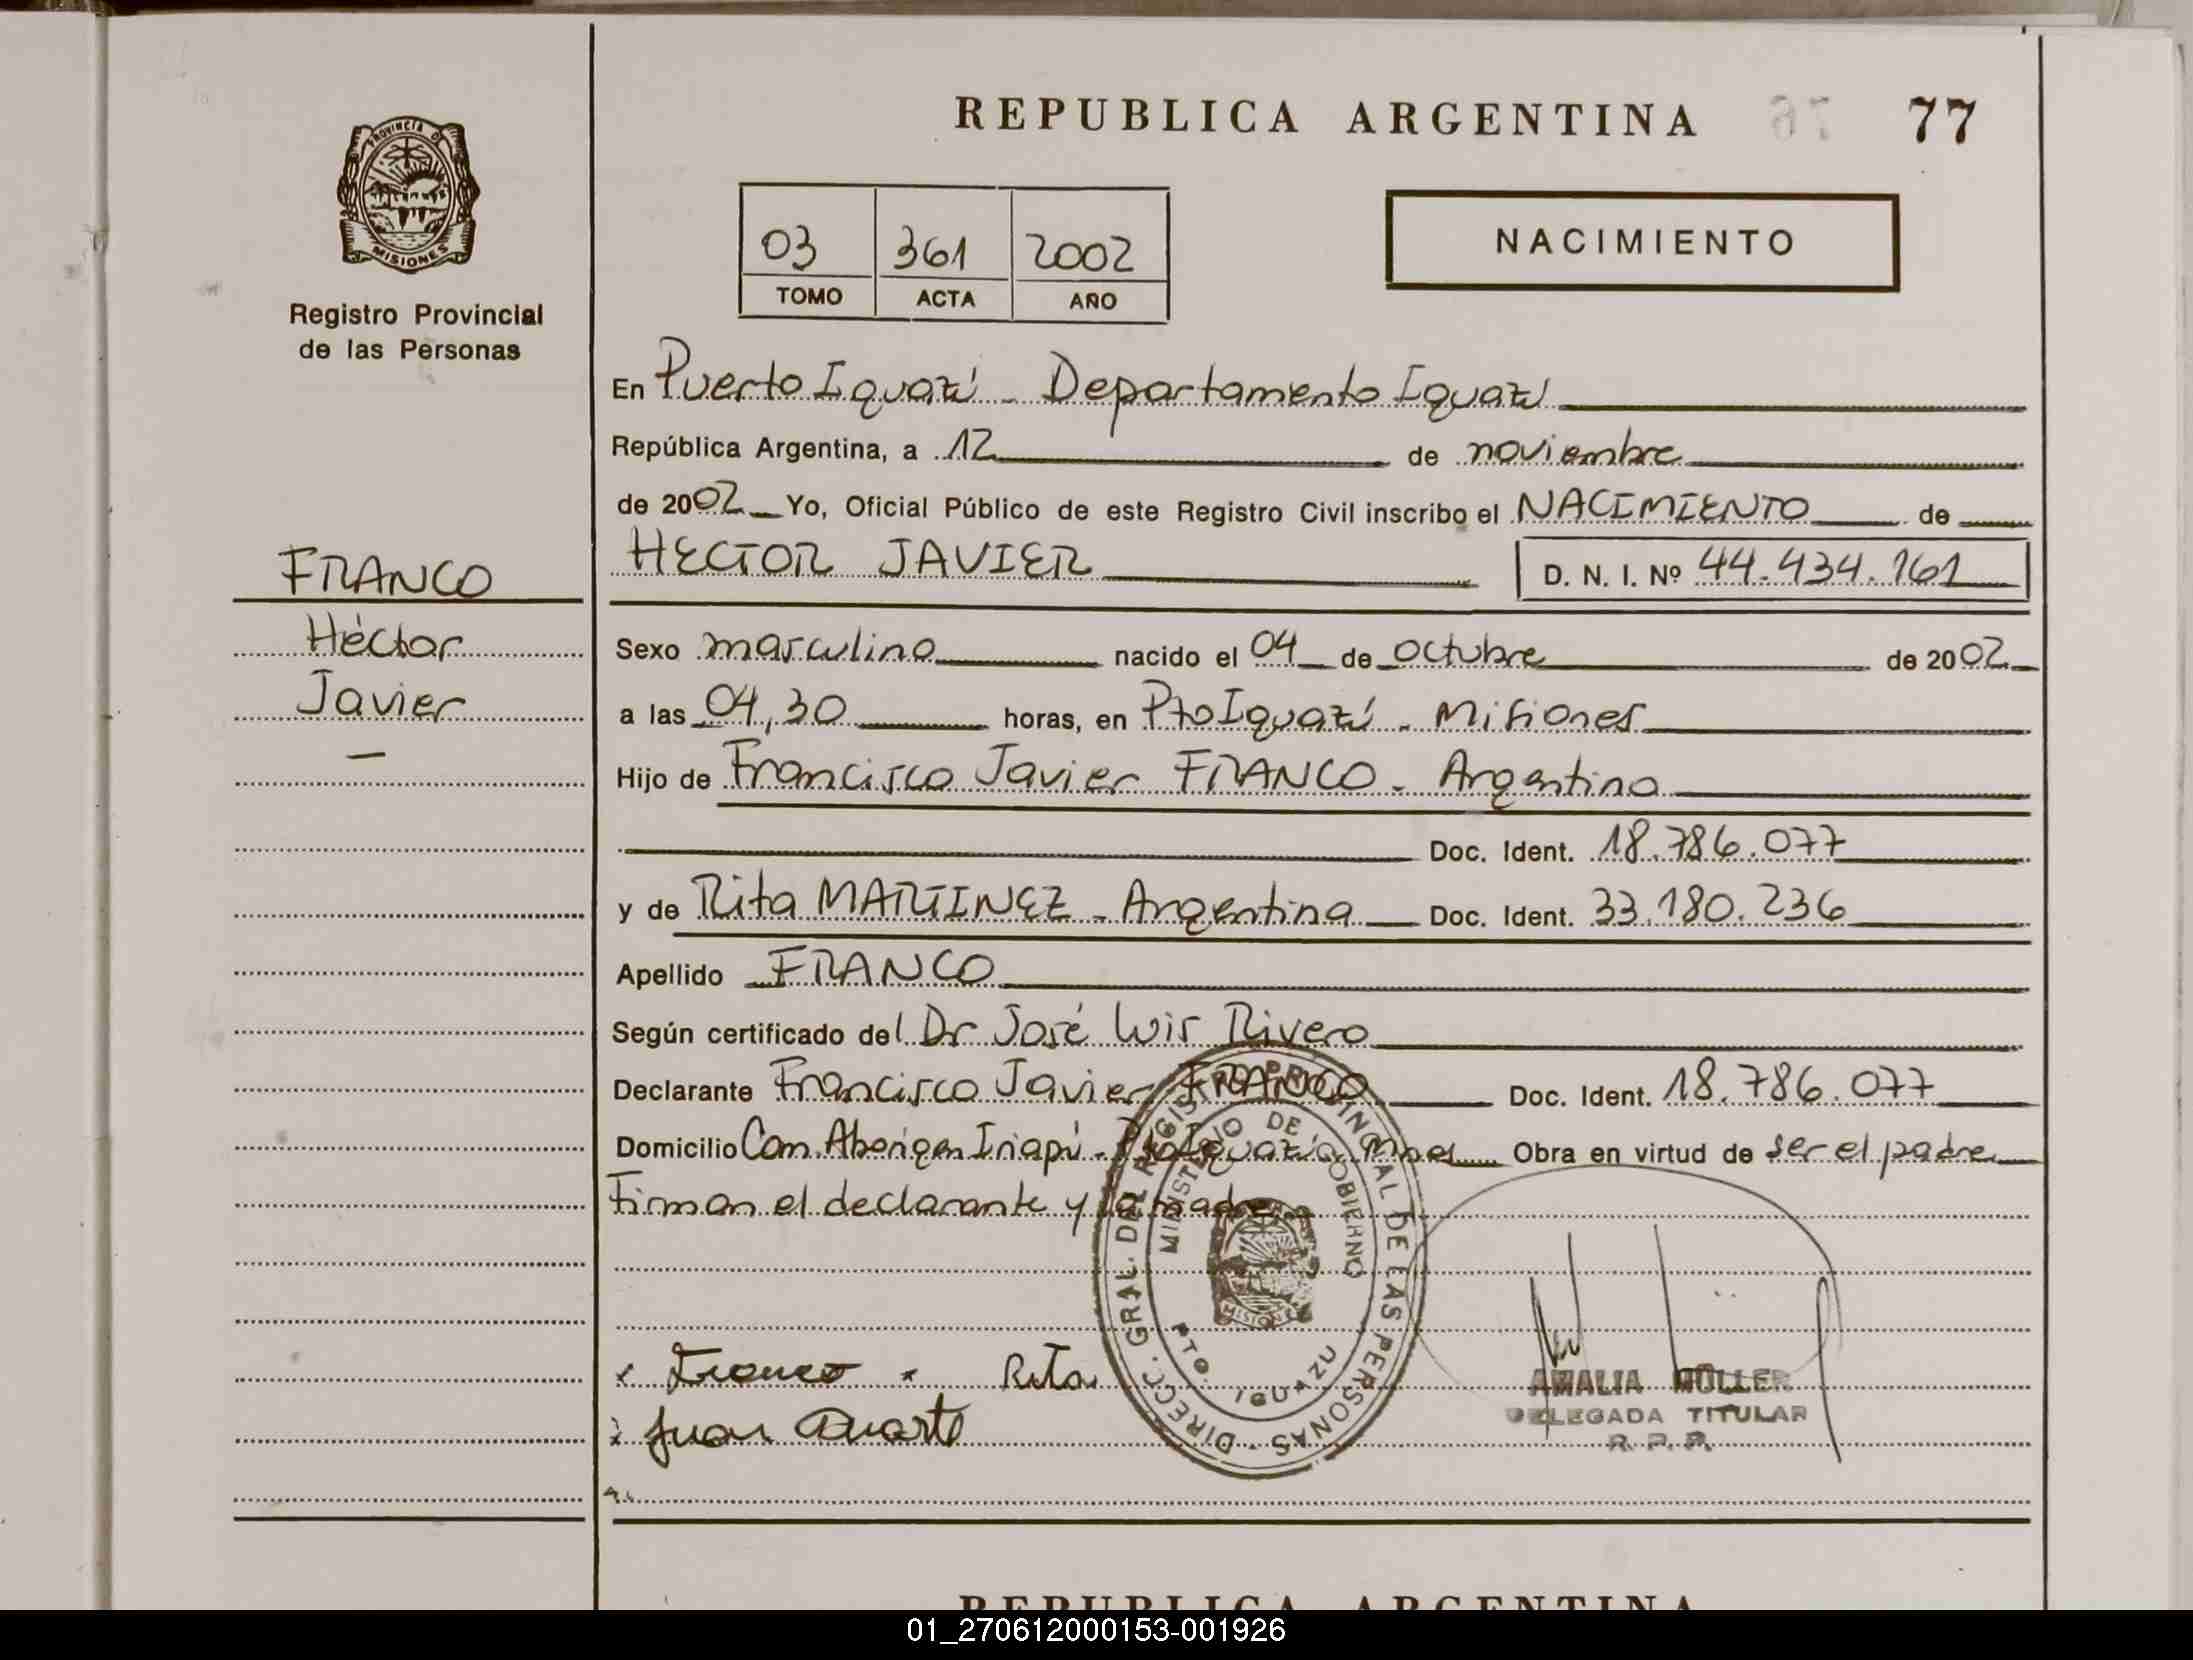 REPUBLICA ARGENTINA 76 77
PROVINCIA DE
MISIONES
Registro Provincial
de las Personas
03 361 2002
TOMO ACTA AÑO
NACIMIENTO
En Puerto Iguazú - Departamento Iguazú
República Argentina, a 12 de noviembre
de 2002 Yo, Oficial Público de este Registro Civil inscribo el NACIMIENTO de
HECTOR JAVIER D. N. I. Nº 44.434.161
FRANCO
Héctor
Javier
Sexo masculino nacido el 04 de octubre de 2002
a las 04,30 horas, en Pto Iguazú - Misiones
Hijo de Francisco Javier FRANCO - Argentino
Doc. Ident. 18.786.077
y de Rita MARTINEZ - Argentina Doc. Ident. 33.180.236
Apellido FRANCO
Según certificado del Dr José Luis Rivero
Declarante Francisco Javier FRANCO Doc. Ident. 18.786.077
Domicilio Com. Aborigen Iriapú - Pto Iguazú Mnes Obra en virtud de ser el padre
Firman el declarante y la madre
DIRECC. GRAL. DEL REGISTRO PROVINCIAL DE LAS PERSONAS
MINISTERIO DE GOBIERNO
MISIONES
PTO. IGUAZU
x Franco x Rita
Juan Duarte
AMALIA MÜLLER
DELEGADA TITULAR
R. P. P.
REPUBLICA ARGENTINA
01_270612000153-001926